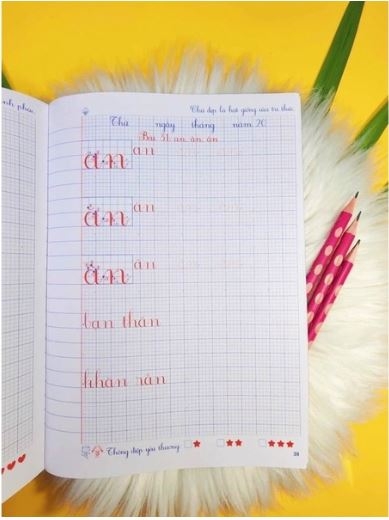 Chữ đẹp là hạt giống của tri thức
Thứ ngày tháng năm 20
Bài 51: an, ăn, ân
an an
ăn ăn
ân ân
bạn thân
khăn rằn
Thông điệp yêu thương: